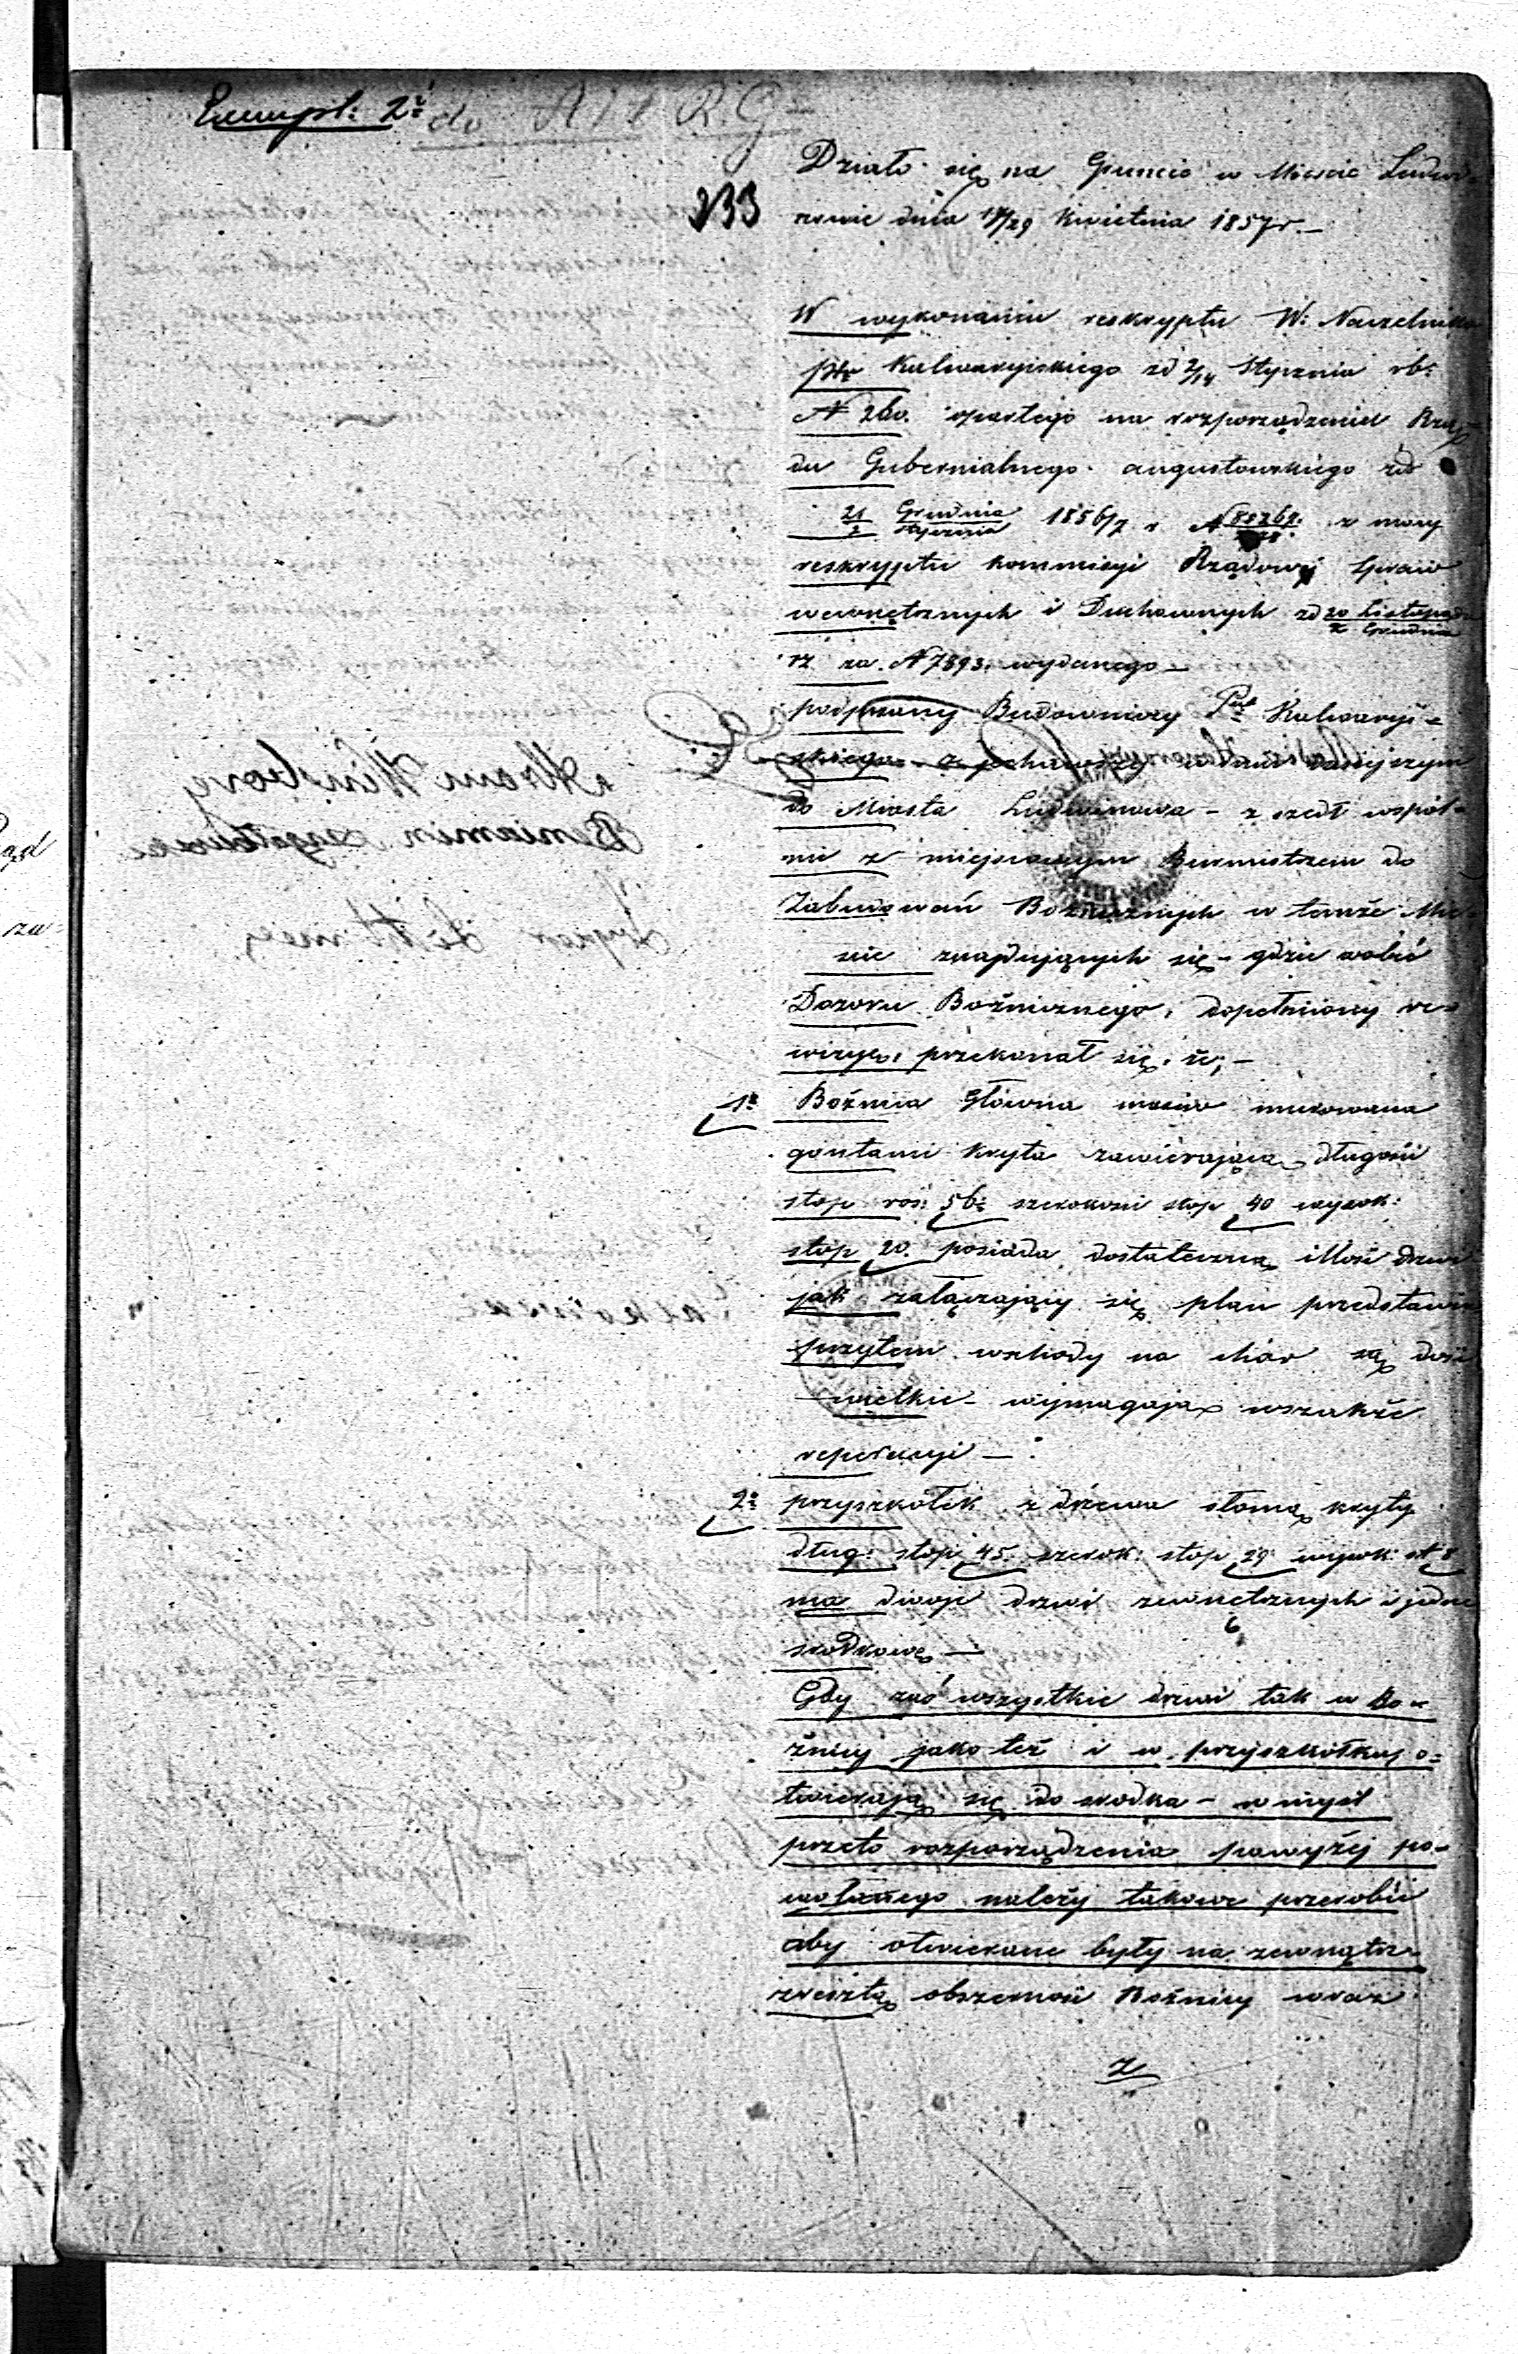 Exempl: 2i do R. G
233
Działo się na Gruncie w Mieście Ludwi-
nowie dnia 17/29 Kwietnia 1857 r. —
W wykonaniu reskryptu W: Naczelnika
Ptu Kalwaryjskiego zd 2/14 Stycznia rb:
N 260. opartego na rozporządzeniu Rzą-
du Gubernialnego augustowskiego zd
21/2 Grudnia/Stycznia 1856/7 r N z mocy
reskryptu Kommisyi Rządowej Spraw
wewnętrznych i Duchownych zd 20 Listopada/2 Grudnia
rz za N 7893. wydanego —
podpisany Budowniczy Ptu Kalwaryj-
skiego z w dniu dzisiejszym
do Miasta Ludwinowa - zszedł wspól-
nie z miejscowym Burmistrzem do
Zabudowań Bożniczych w temże Mie-
ście znajdujących się - gdzie wobec
Dozoru Bożnicznego, dopełniony re-
wizyi, przekonał się, że; —
1e Bożnica Główna murowana
gontami kryta zawierająca długości
stóp ros: 56: szerokości stóp 40 wysok:
stóp 20. posiada dostateczną illość drzwi
jak załączający się plan przedstawia
przytem wschody na chór są dość
wielkie - wymagają wszakże
reperacyi — .
2e przyszkółek z drzewa słomą kryty
dług: stóp 45. szerok: stóp 29 wysok: st 8
ma dwoje drzwi zewnętrznych i jedne
środkowe —
Gdy zaś wszystkie drzwi tak w Bo-
żnicy jako też i w przyszkółku o-
twierają się do środka - w myśl
przeto rozporządzenia powyżej po-
wołanego należy takowe przerobić
aby otwierane były na zewnątrz -
zresztą obszerność Bożnicy wraz
z